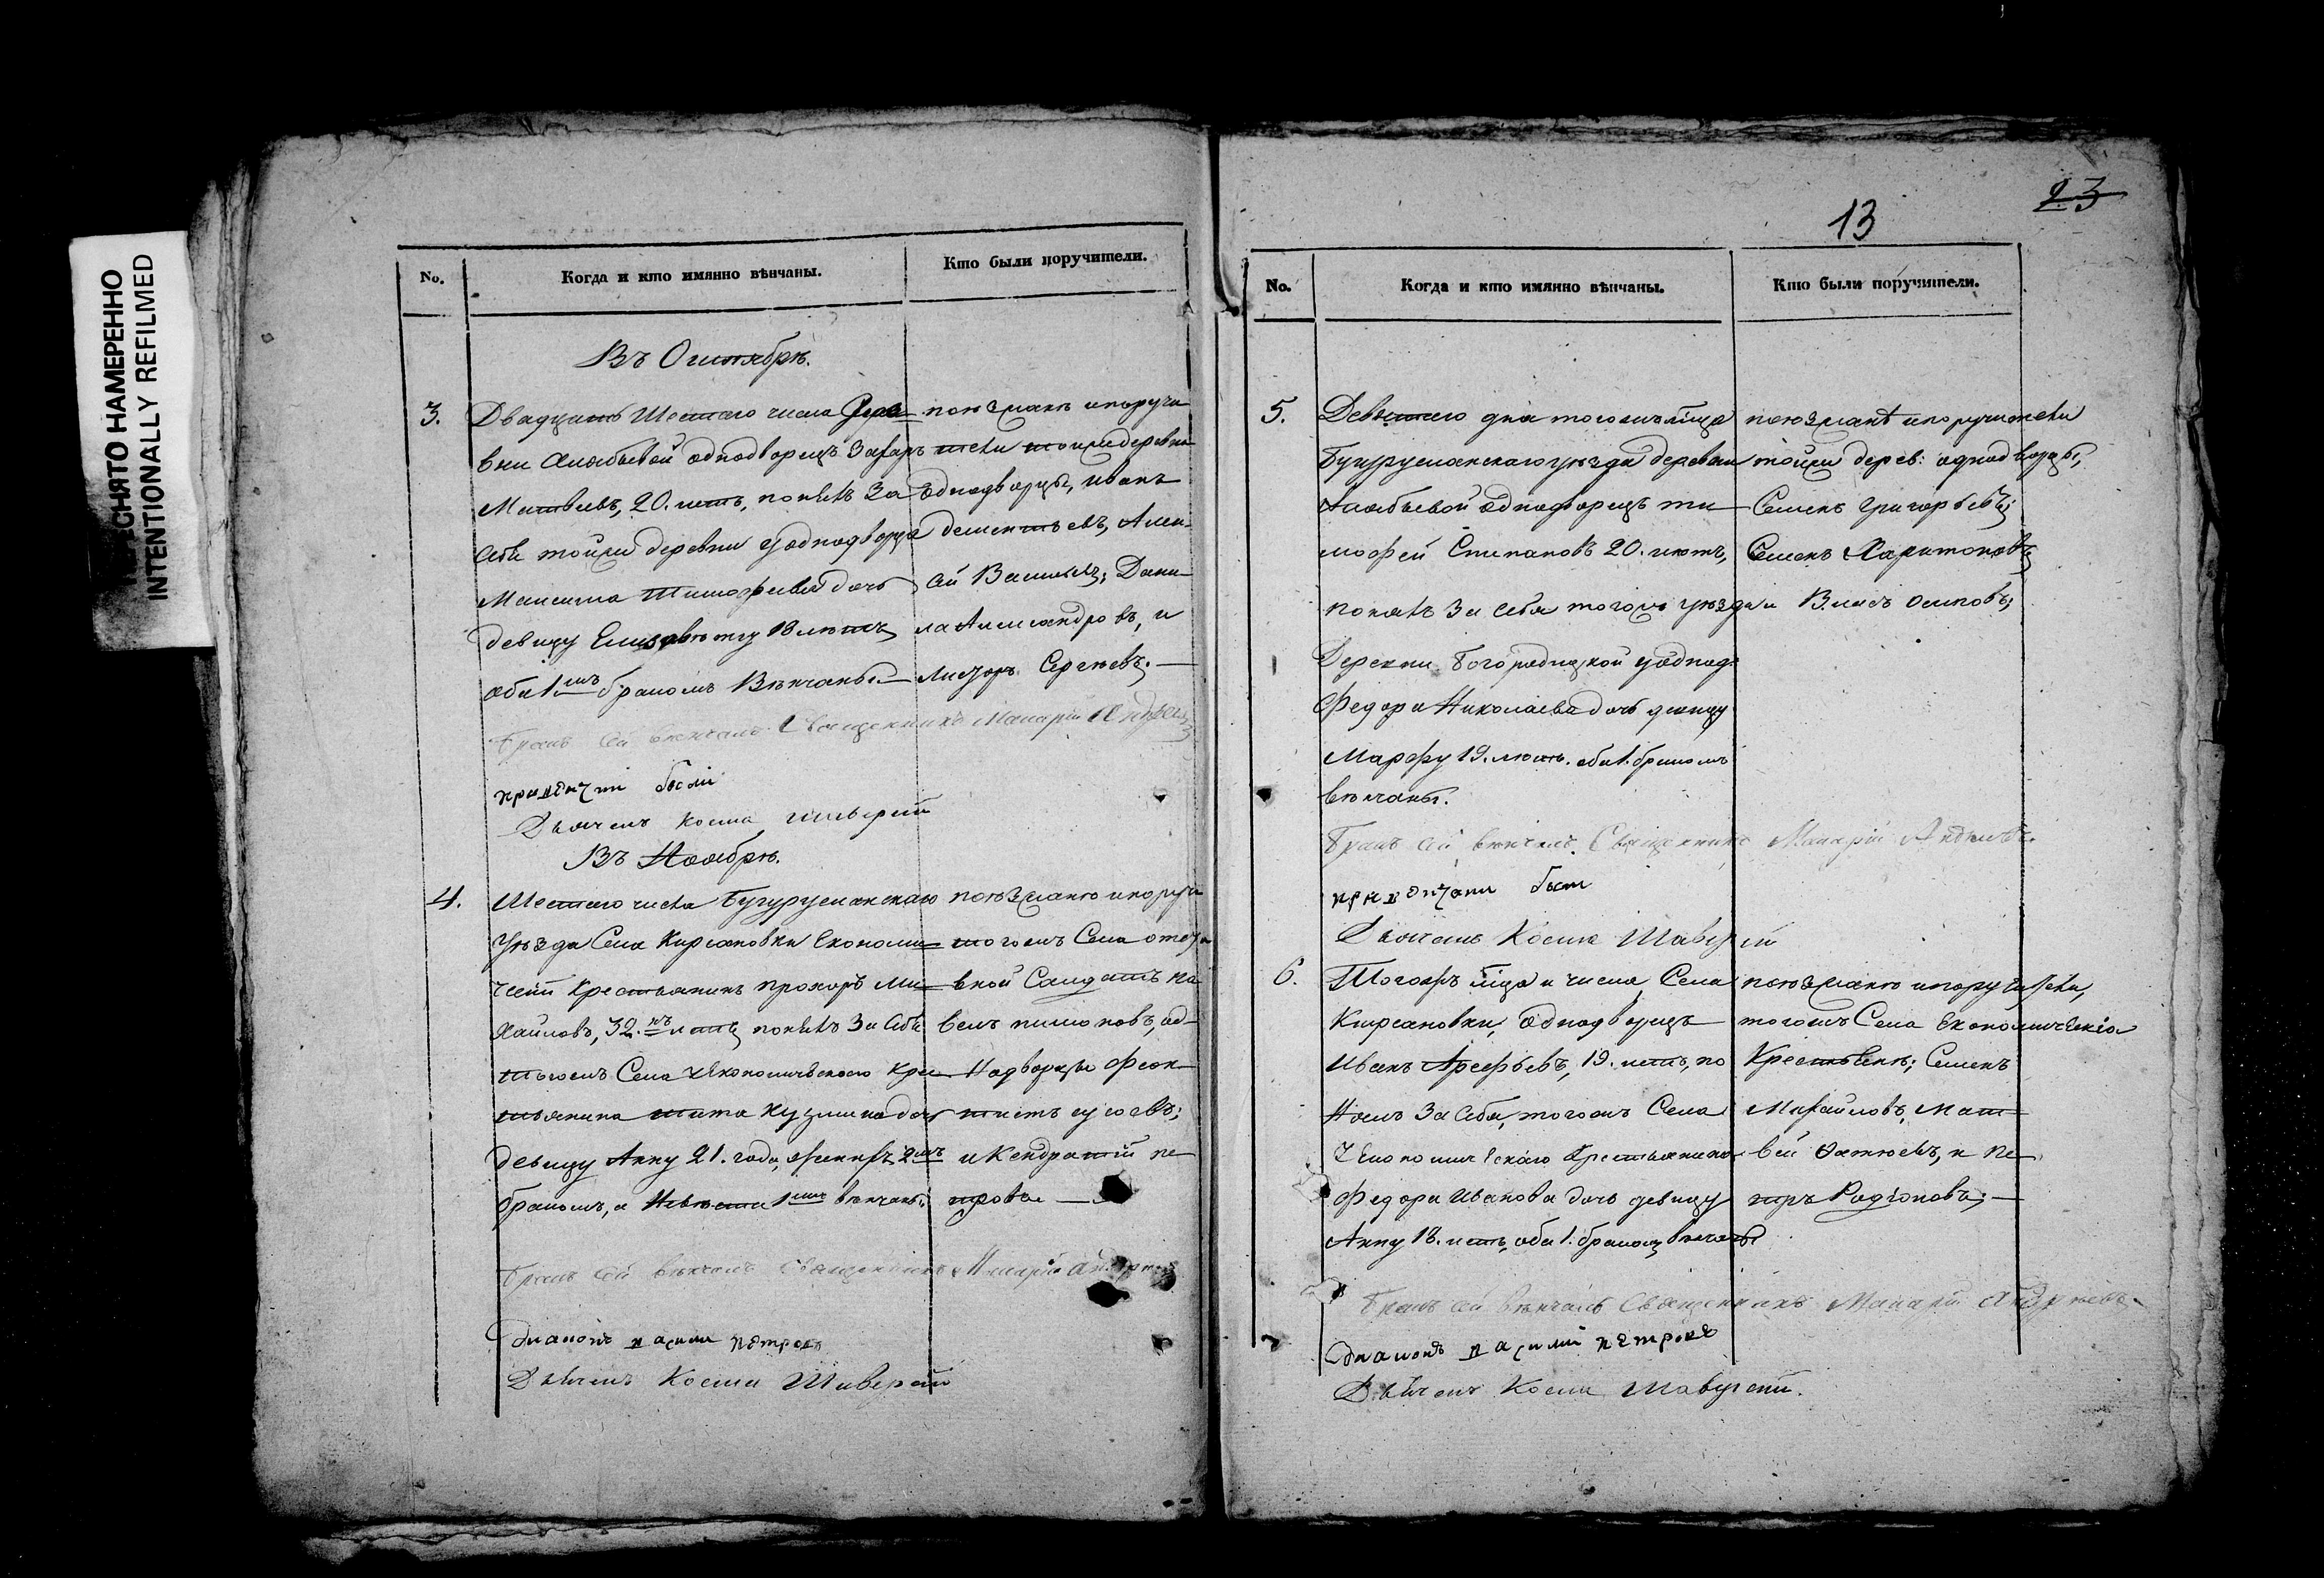 ПЕРЕСНЯТО НАМЕРЕННО
INTENTIONALLY REFILMED
No.
Когда и кто имянно вѣнчаны.
Кто были поручители.
Въ Октябрѣ.
3.
Двадцать Шестаго числа Дере-
вни Аказбъевой однодворецъ Захаръ
Матвеевъ, 20. летъ, понялъ За
себя тойже деревни уоднодворца
Максима Тимофеева дочь
девицу Елизавѣту 18 лѣтъ
оба 1мъ бракомъ Вѣнчаны.
поѣзжанѣ ипоручи
тели тойже деревни
Однодворцы, иванъ
дементьевъ, Алек-
сей Васильевъ; Дани-
ла Александровъ, и
Сергѣевъ. —
Бракъ сей вѣнчалъ Священникъ Макарий Андреевъ
были
Дьячекъ Косма
Въ Ноябрѣ.
4.
Шестаго числа Бугурусланскаго
Уѣзда Села Кирсановки Економи-
ческий Крестьянинъ прохоръ Ми-
хайловъ, 32. лѣтъ понялъ За себя
тогожъ Села Економическаго Кре-
стьянина тита Кузмина дочь
девицу Анну 21. года, женихъ 2мъ
бракомъ, а Невѣста 1мъ вѣнчаны;
поѣзжанѣ ипоручи
тогожъ Села отста
вной Салдатъ па
велъ пимоновъ, од-
Нодворцы Феок-
тистъ гусевъ;
и Кондратий пе
тровъ —
Бракъ сей вѣнчалъ Священникъ Макарий Андреевъ
диаконъ петровъ
Дьячекъ Косма
23
13
No.
Когда и кто имянно вѣнчаны.
Кто были поручители.
5.
Девятаго дня тогожъ мѣца
Бугурусланскаго уѣзда деревни
Аказбъевой однодворецъ ти-
мофей Степановъ 20. лѣтъ,
понялъ За себя тогожъ уѣзда
Деревни Богородицкой уоднод:
Федора Николаева дочь девицу
Марфу 19. лѣтъ. оба 1. бракомъ
вѣнчаны.
поѣзжанѣ ипоручители
тойже дерев: однодворцы,
Семенъ григорьевъ;
Семенъ Харитоновъ,
и Власъ осиповъ;
Бракъ сей вѣнчалъ Священникъ Макарий Андреевъ.
были
Дьячекъ Косма
6.
Тогожъ мѣца и числа Села
Кирсановки, Однодворецъ
Иванъ Арефьевъ, 19. летъ, по
Нялъ За себя, тогожъ Села
Економическаго Крестьянина
Федора Иванова дочь девицу
Анну 18. летъ, оба 1. бракомъ вѣнчаны
поѣзжанѣ ипоручители,
тогожъ Села Економическіа
Крестьянѣ; Семенъ
Михайловъ, Мат-
вей Фатѣевъ, и Пе-
тръ Родіоновъ; —
Бракъ сей вѣнчалъ Священникъ Макарий Андреевъ.
диаконъ петровъ
Дьячекъ Косма